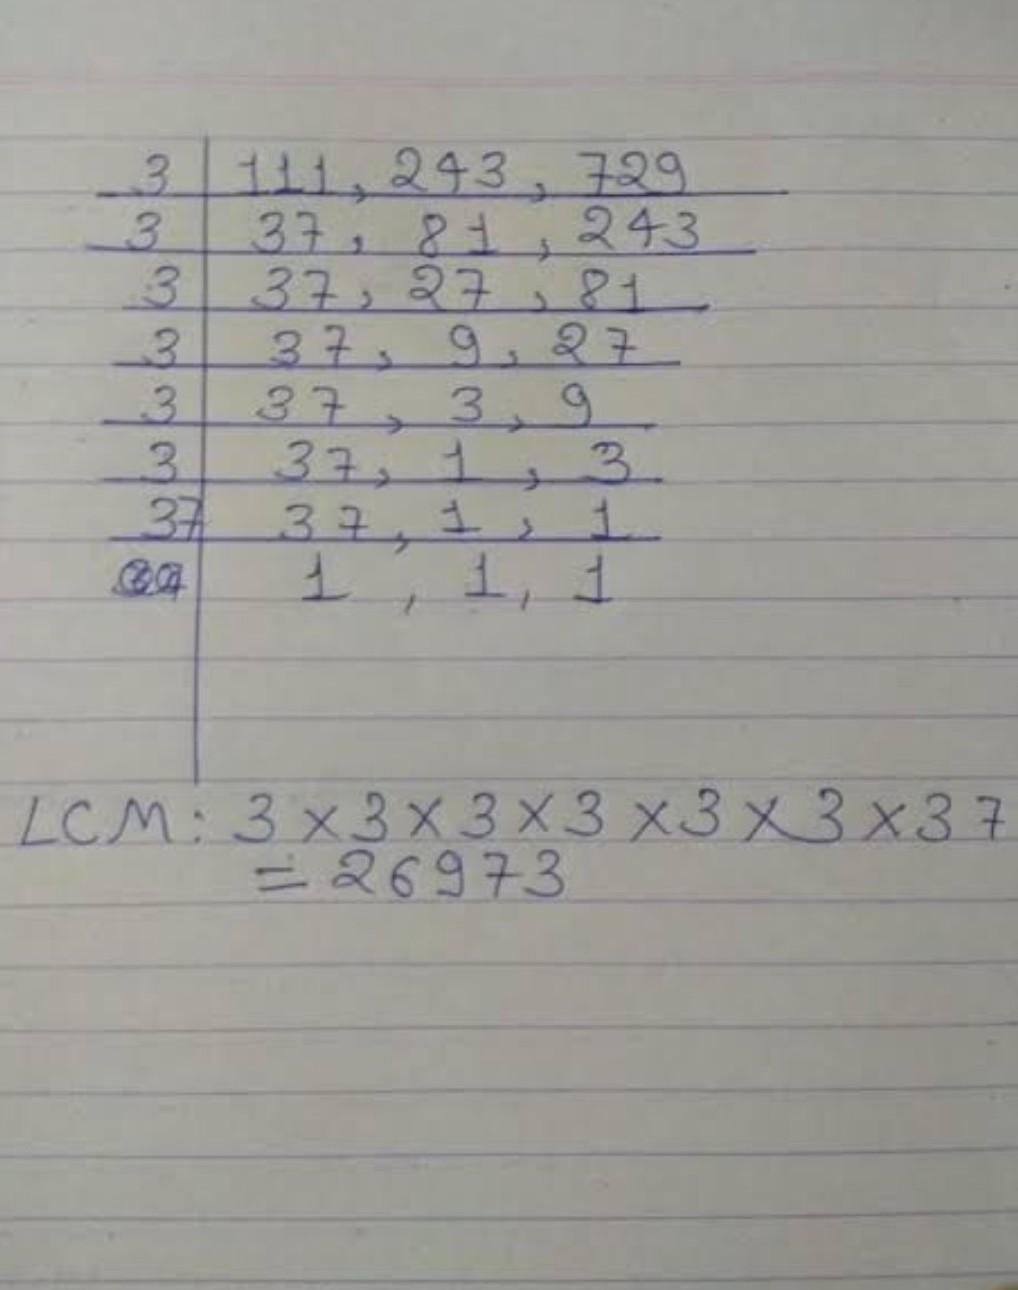 3 111, 243, 729
3 37, 81, 243
3 37, 27, 81
3 37, 9, 27
3 37, 3, 9
3 37, 1, 3
37 37, 1, 1
1, 1, 1
LCM: 3×3×3×3×3×3×37
= 26973